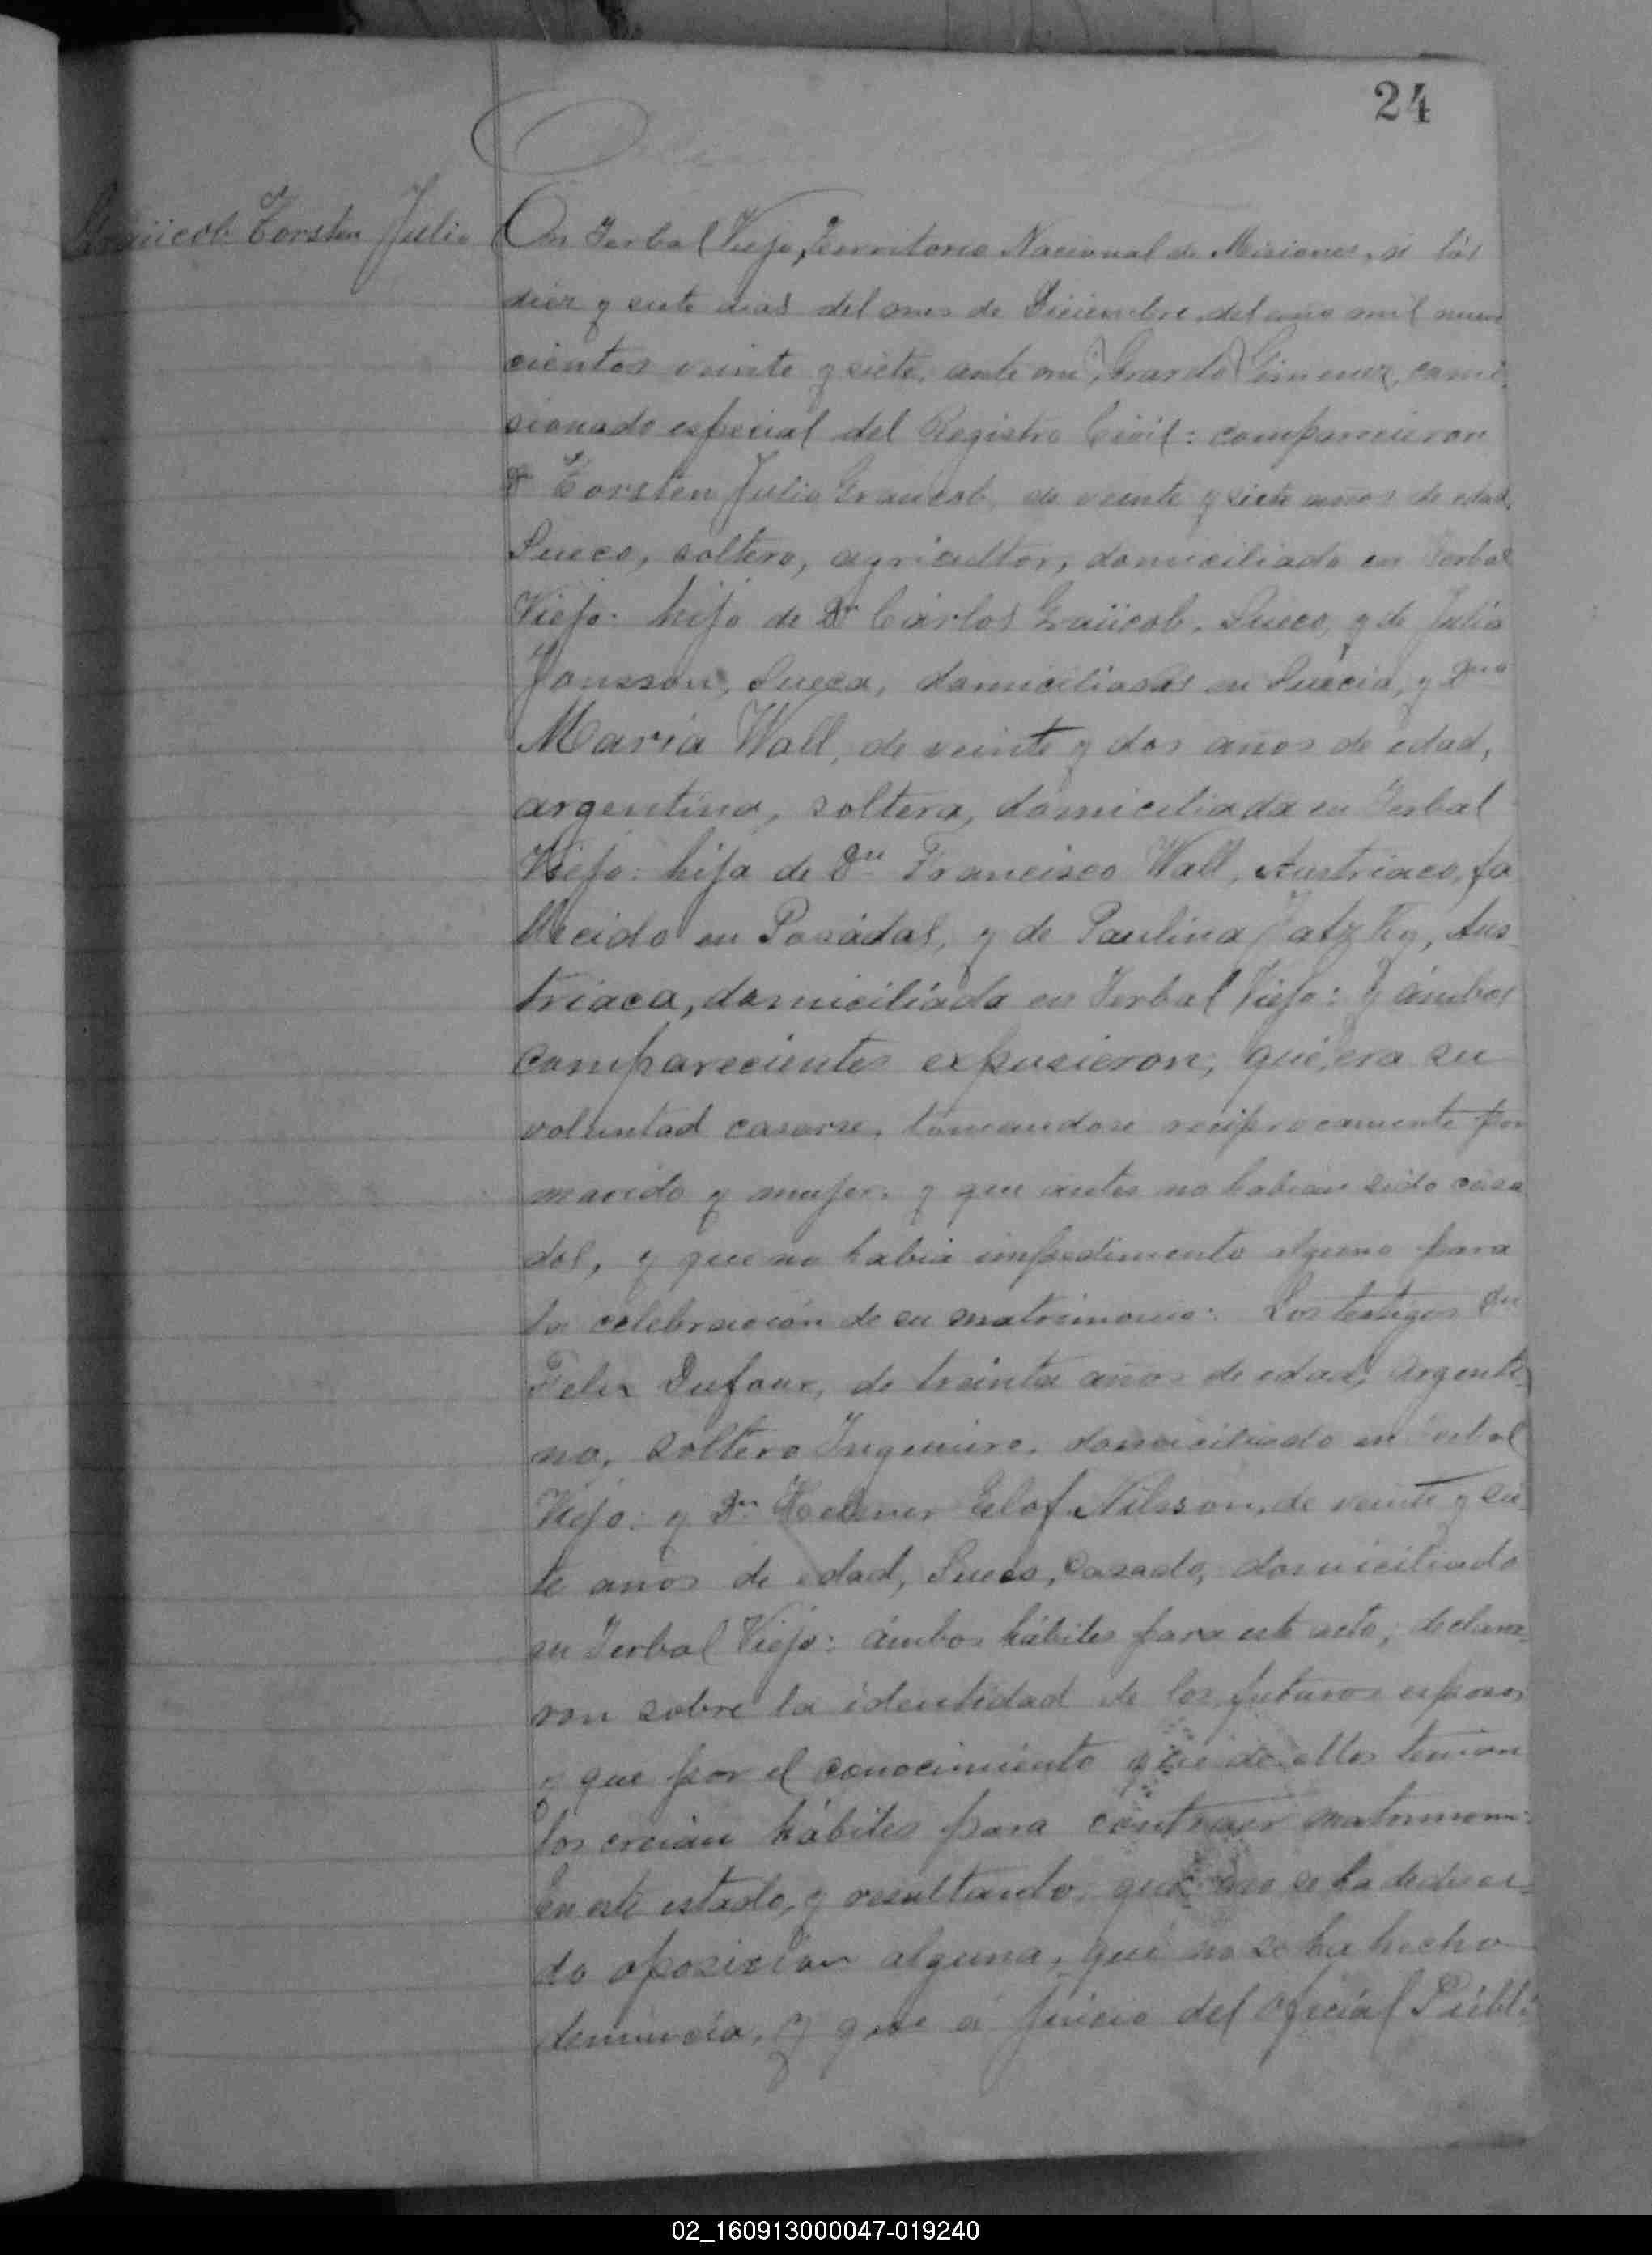 24
Graücob Torsten Julio
En Yerbal Viejo, Territorio Nacional de Misiones, á los
diez y siete dias del mes de Diciembre, del año mil nuve
cientos veinte y siete, ante mi, Gimenez, comi
sionado especial del Registro Civil: comparecieron
Dn Torsten Julio Graucob, de veinte y siete años de edad,
Sueco, soltero, agricultor, domiciliado en Yerbal
Viejo: hijo de Dn Cárlos Graücob, Sueco, y de Julia
Jonsson, Sueca, domiciliados en Suécia, y Dna
María Wall, de veinte y dos años de edad,
argentina, soltera, domiciliada en Yerbal
Viejo: hija de Dn Francisco Wall, Austriaco, fa
llecido en Posádas, y de Paulina Jatzky, Aus
triaca, domiciliáda en Yerbal Viejo: y ámbos
comparecientes expusieron, que, era su
voluntad casarse, tomandose reciprocamente por
marido y mujer: y que antes no habian sido casa
dos, y que no habia impedimento alguno para
la celebración de su matrimonio: Los testigos Dn
Felix Dufour, de treinta años de edad, argenti
no, soltero Ingeniero, domiciliado en Yerbal
Viejo: y Dn Elof Nilsson, de veinte y sie
te años de edad, Sueco, Casado, domiciliado
en Yerbal Viejo: ámbos hábiles para este acto, declara
ron sobre la identidad de los futuros esposos
y que por el conocimiento que de ellos tenian
los creian hábiles para contraer matrimonio:
En este estado, y resultando que no se ha deduci
do oposicion alguna, que no se ha hecho
denuncia, y que a juicio del Oficial Públi
02_160913000047-019240